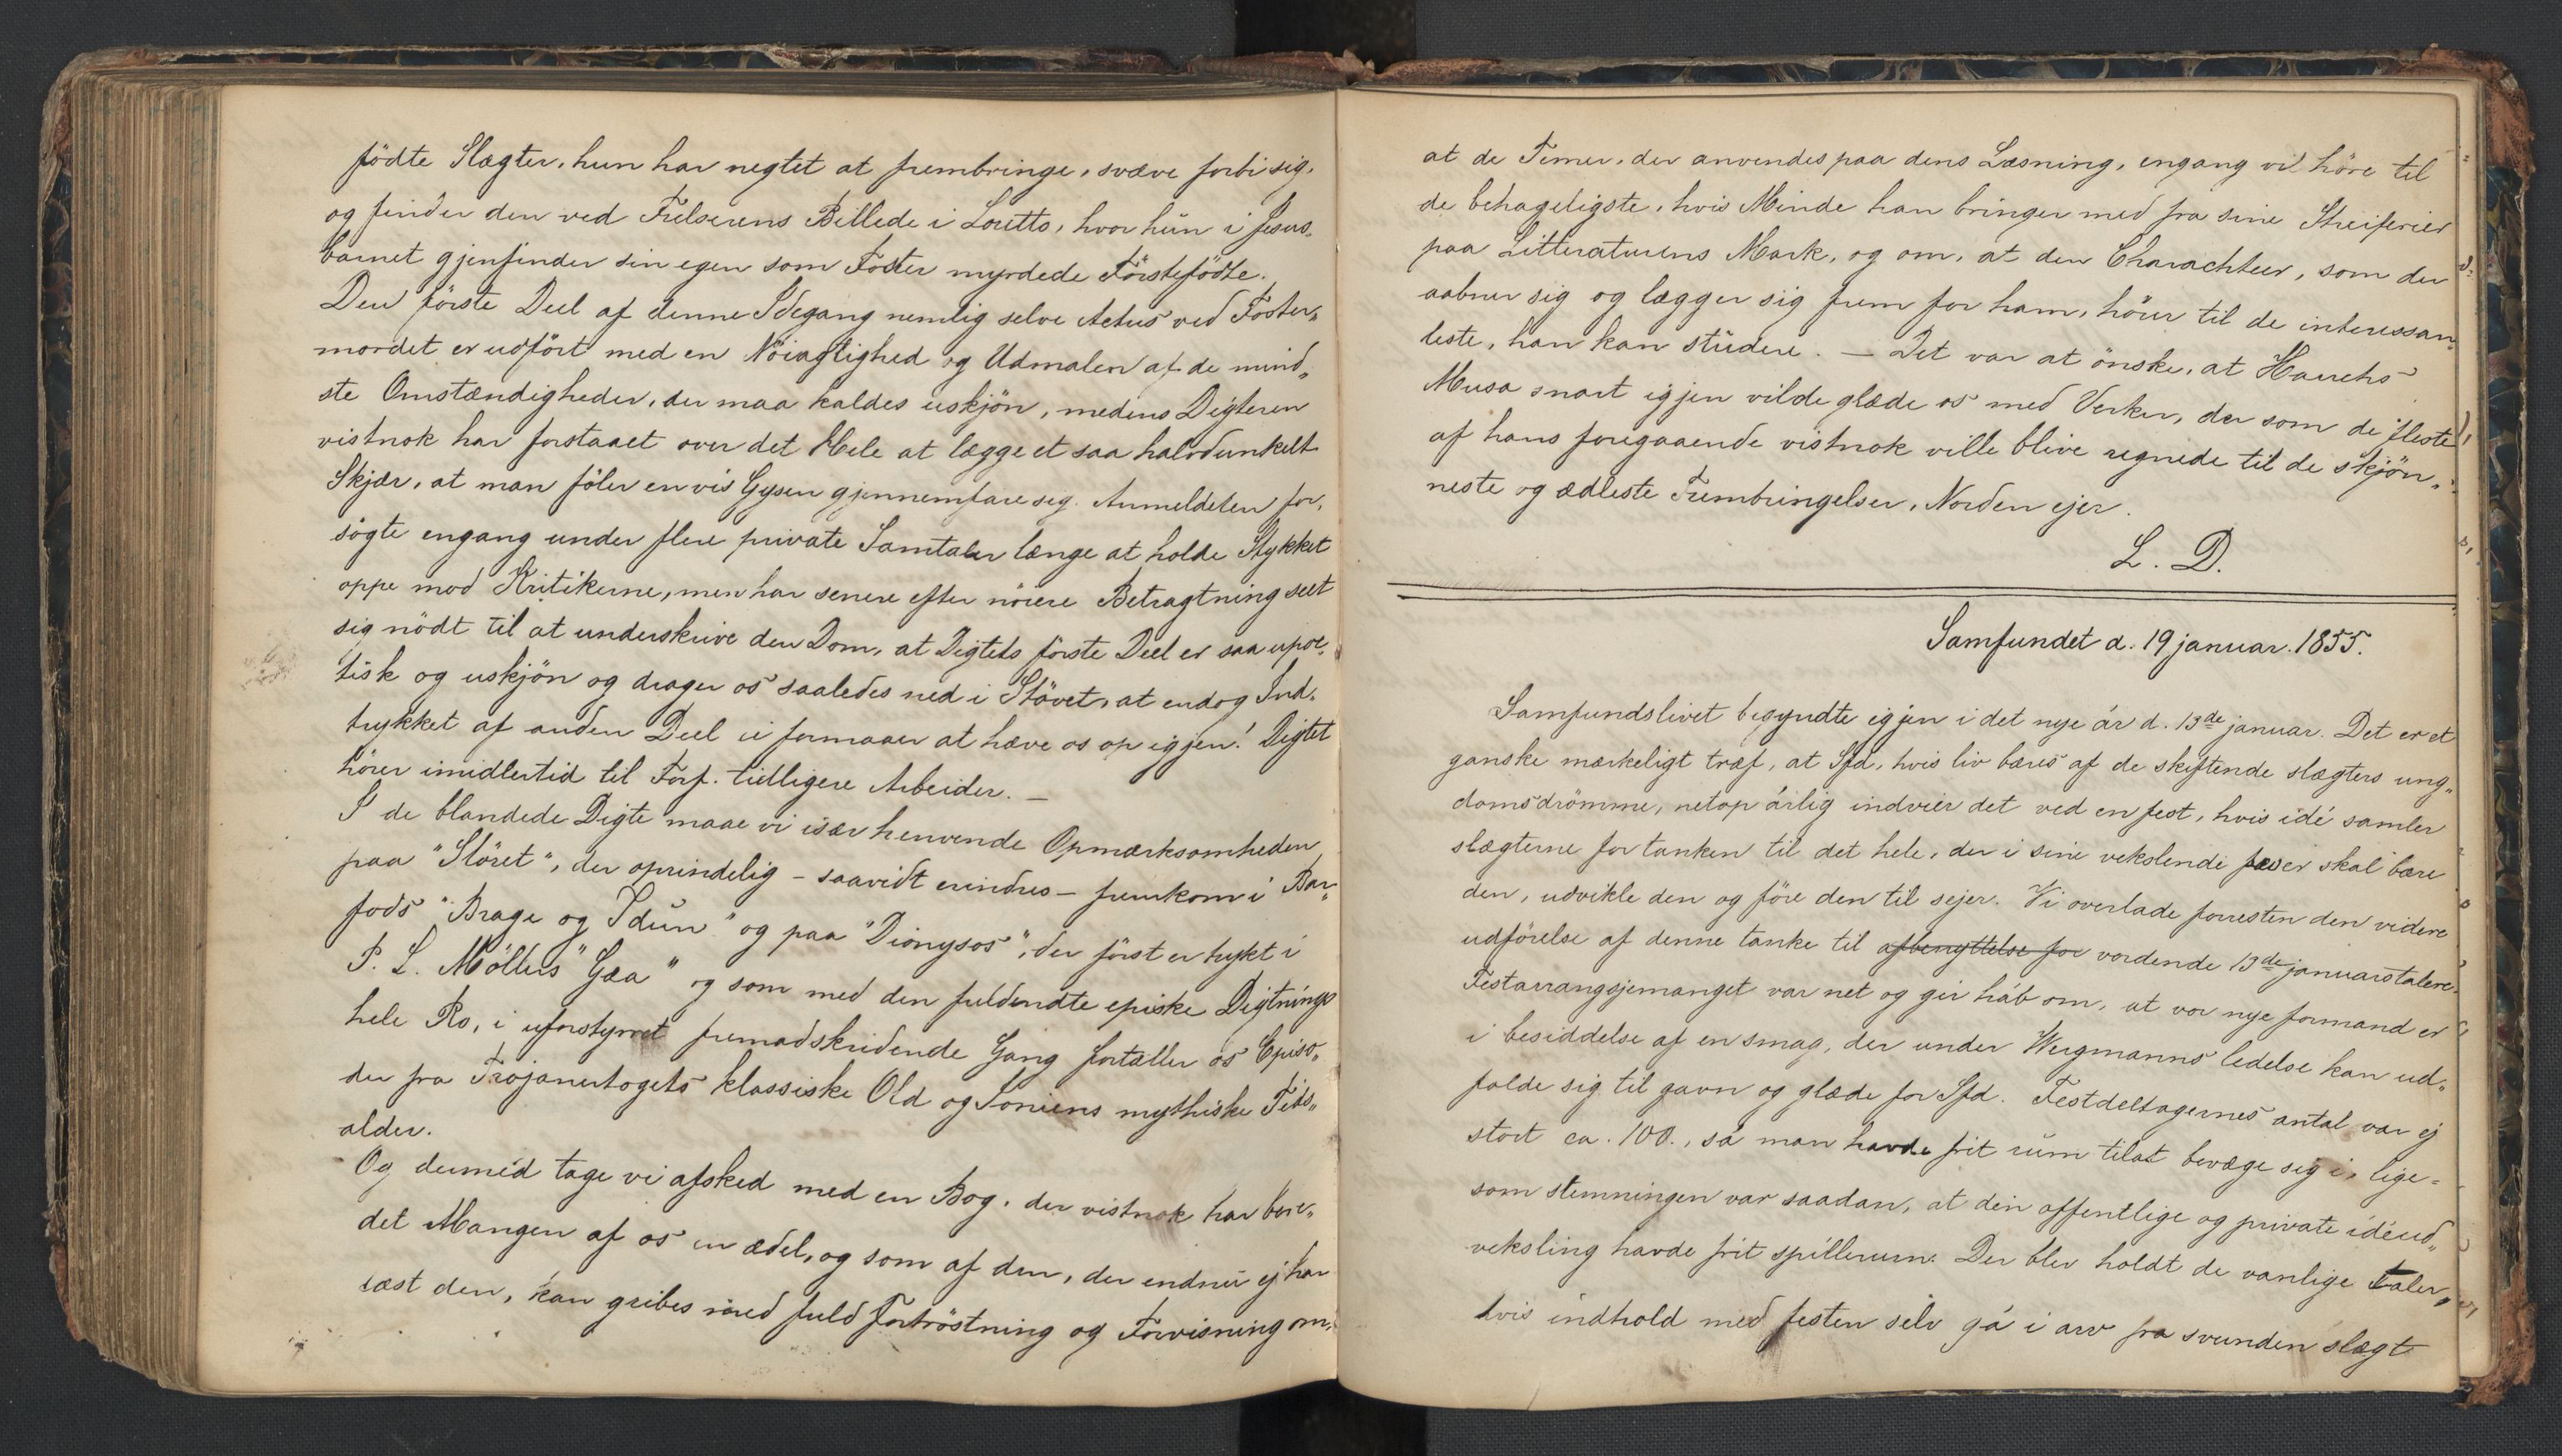 födte Slægter, hun har negtet at frembringe, svæve forbi sig,
og finder den ved Frelserens Billede i Loretto, hvor hun i Jesus-
barnet gjenfinder sin egen som Foster myrdede Förstefödte.
Den förste Deel af denne Idegang nemlig selve Actus ved Foster„
mordet er udfört med en Nöiagtighed og Udmalen af de mind„
ste Omstændigheder, der maa kaldes uskjön, medens Digteren
vistnok har forstaaet over det Hele at lægge et saa halvdunkelt
Skjær, at man föler en vis Gysen gjennemfare sig. Anmelderen for„
sögte engang under flere private Samtaler længe at holde Stykket
oppe mod Kritikerne, men har senere efter nöiere Betragtning seet
sig nödt til at underskrive den Dom, at Digtets förste Deel er saa upoe„
tisk og uskjön og drager os saaledes ned i Stövet, at endog Ind„
trykket af anden Deel ei formaaer at hæve os op igjen! Digtet
hörer imidlertid til Forf. tidligere Arbeider. —
I de blandede Digte maae vi især henvende Opmærksomheden
paa "Slöret", der oprindelig – saavidt erindres – fremkom i Bar„
fods "Brage og Idun" og paa "Dionysos", der först er trykt i
P. L. Möllers "Gæa" og som med den fuldendte episke Digtnings
hele Ro, i uforstyrret fremadskridende Gang fortæller os Episo„
der fra Trojanertogets klassiske Old og Ioniens mythiske Tids„
alder.
Og dermed tage vi afsked med en Bog, der vistnok har bere„
det Mangen af os en ædel, og som af den, der endnu ej har
læst den, kan gribes med fuld Fortröstning og Forvisning om,
at de Timer, der anvendes paa dens Læsning, engang vil höre til
de behageligste, hvis Minde han bringer med fra sine Streiferier
paa Litteraturens Mark, og om, at den Charachteer, som der
aabner sig og lægger sig frem for ham, hörer til de interessan„
teste, han kan studere. — Det var at önske, at Hauchs
Musa snart igjen vilde glæde os med Verker, der som de fleste
af hans foregaaende vistnok ville blive regnede til de skjön„
neste og ædleste Frembringelser, Norden ejer.
L. D.
Samfundet d. 19 januar. 1855.
Samfundslivet begyndte igjen i det nye år d. 13de januar. Det er et
ganske mærkeligt træf, at Sfd, hvis liv bæres af de skiftende slægters ung„
domsdrömme, netop årlig indvier det ved en fest, hvis idé samler
slægterne for tanken til det hele, der i sine vekslende faser skal bære
den, udvikle den og före den til sejer. Vi overlade forresten den videre
udförelse af denne tanke til afbenyttelse for vordende 13de januarstalere.
Festarrangsjemanget var net og gir håb om, at vor nye formand er
i besiddelse af en smag, der under Wergmanns ledelse kan ud„
folde sig til gavn og glæde for Sfd. Festdeltagernes antal var ej
stort ca. 100., så man havde frit rum til at bevæge sig i, lige=
som stemningen var saadan, at den offentlige og private idéud„
veksling havde frit spillerum. Der blev holdt de vanlige taler,
hvis indhold med festen selv gå i arv fra svunden slægt